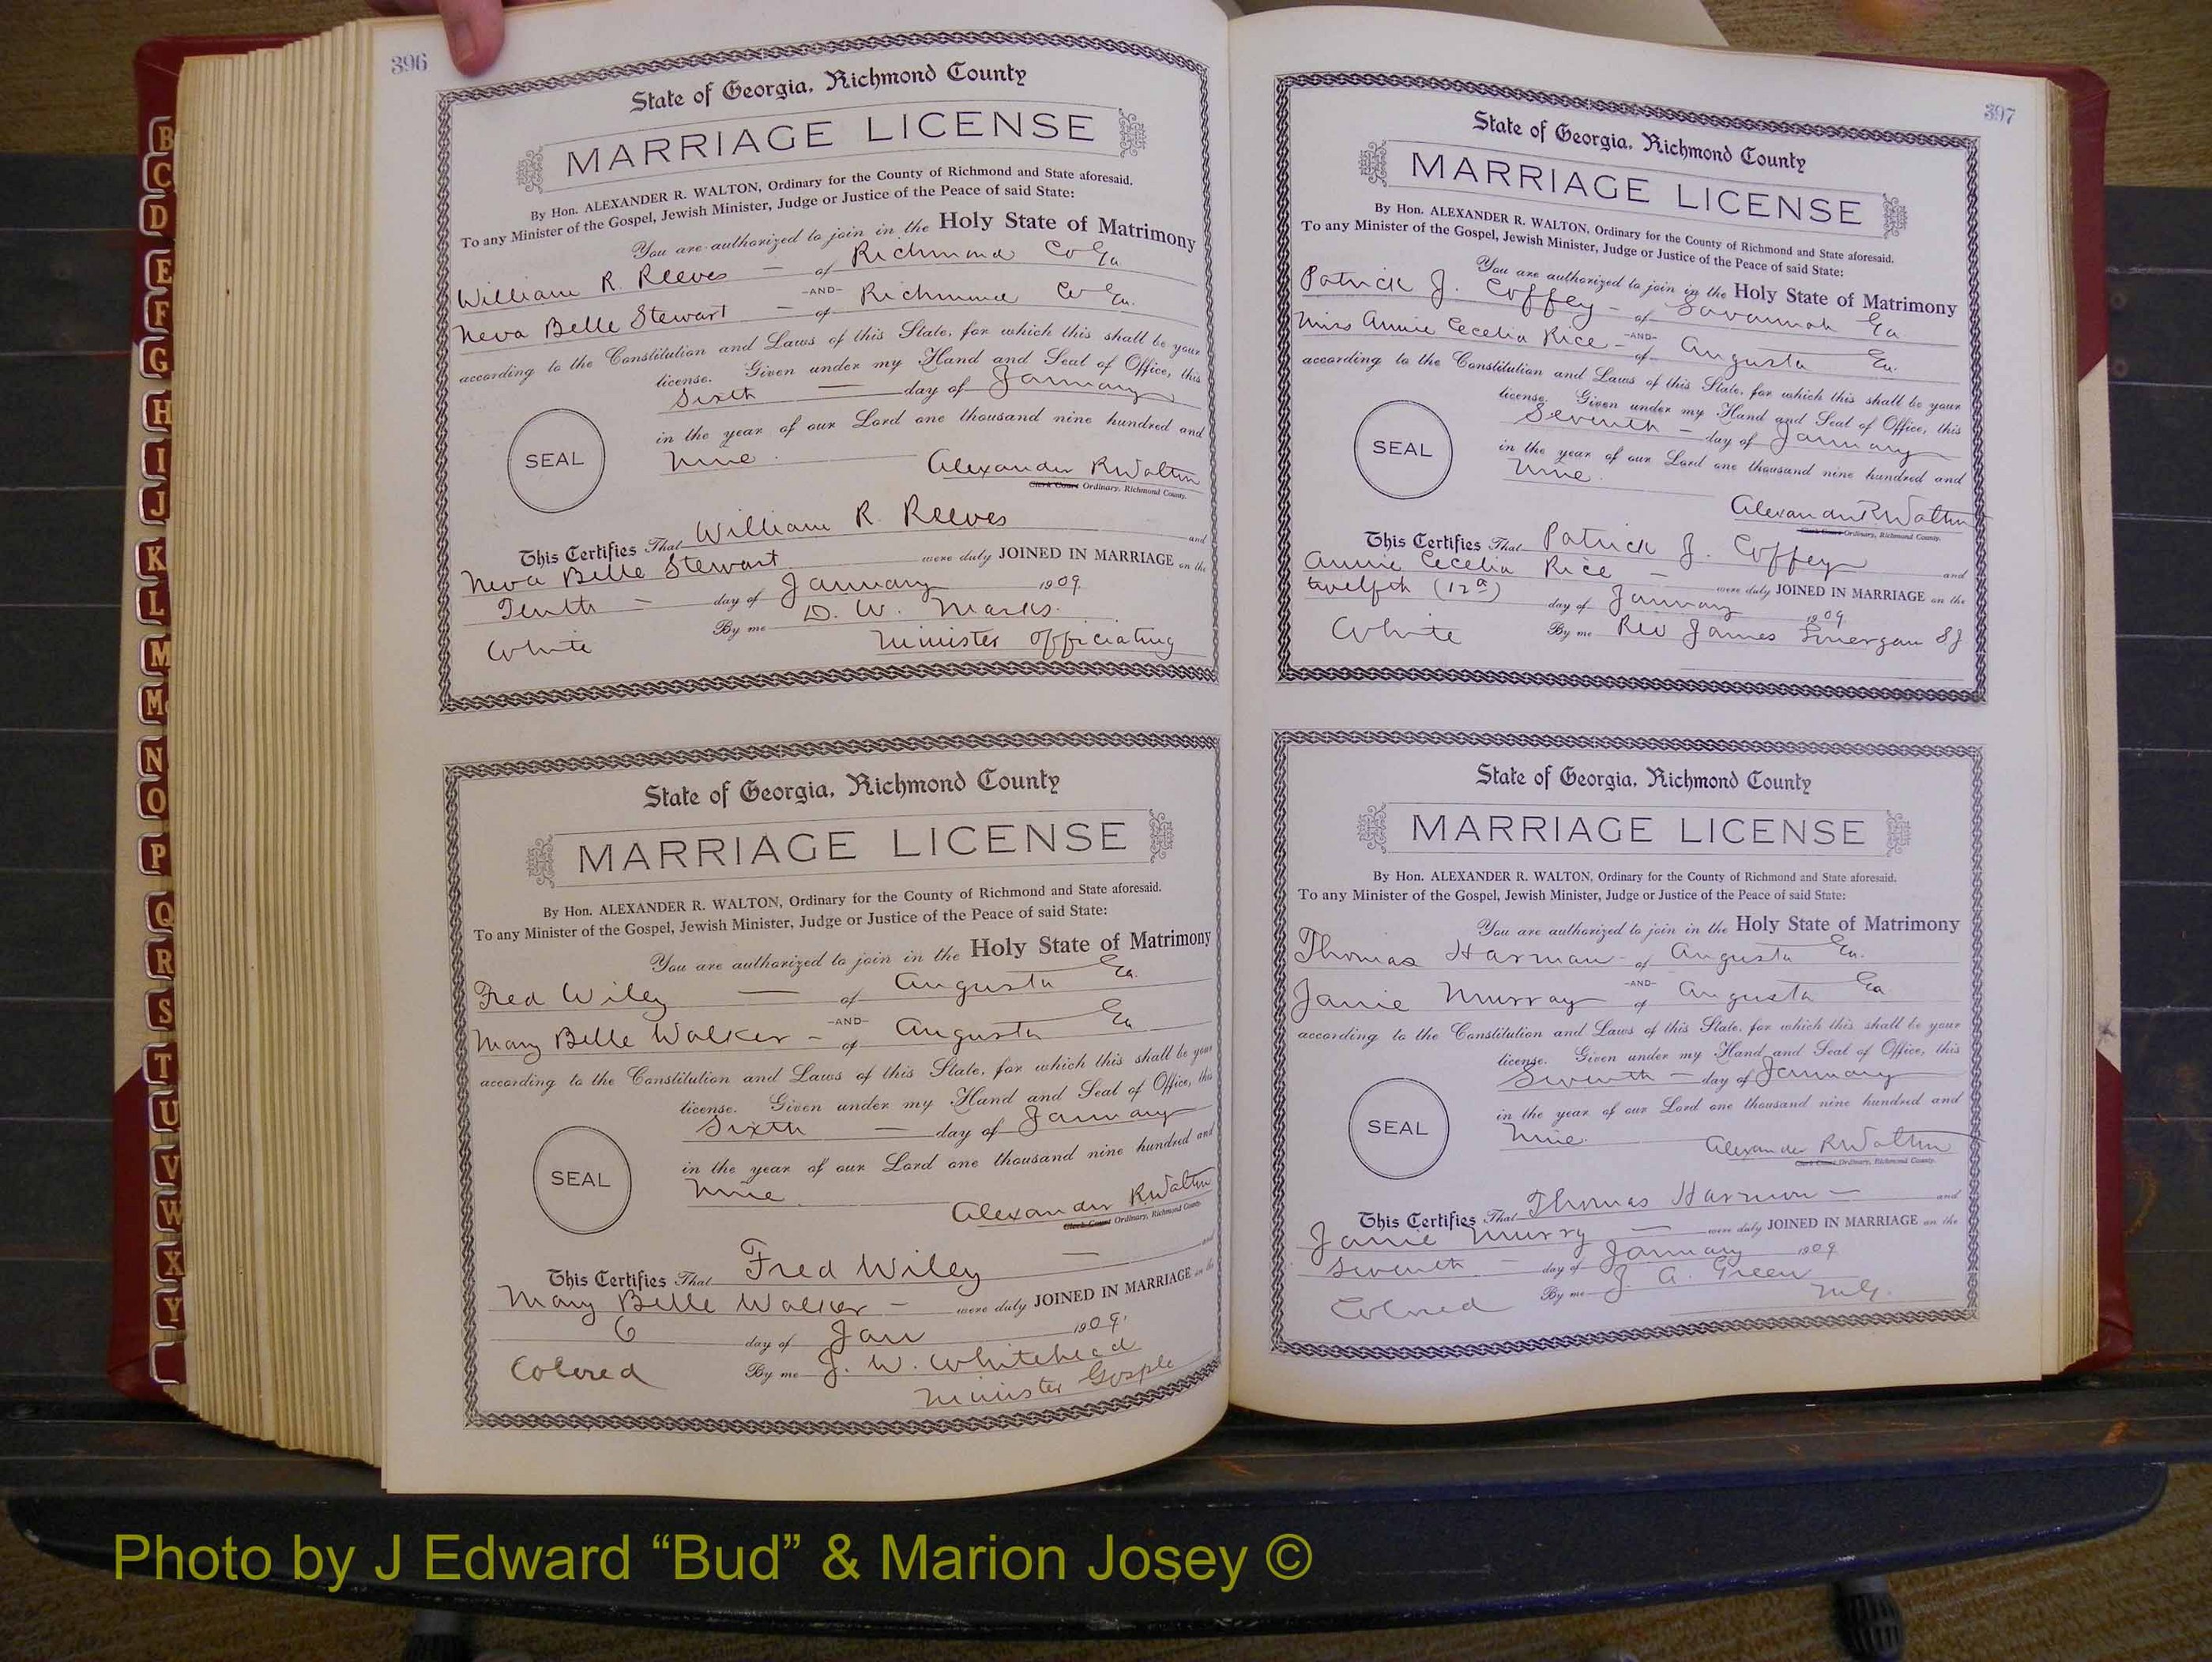 396
State of Georgia, Richmond County
MARRIAGE LICENSE
By Hon. ALEXANDER R. WALTON, Ordinary for the County of Richmond and State aforesaid.
To any Minister of the Gospel, Jewish Minister, Judge or Justice of the Peace of said State:
You are authorized to join in the Holy State of Matrimony
William R. Reeves — of Richmond Co Ga
-AND-
Neva Belle Stewart — of Richmond Co Ga.
according to the Constitution and Laws of this State, for which this shall be your
license. Given under my Hand and Seal of Office, this
Sixth — day of January
in the year of our Lord one thousand nine hundred and
SEAL
Nine.
Alexander R Walton
Clerk Court Ordinary, Richmond County.
This Certifies That William R. Reeves and
Neva Belle Stewart were duly JOINED IN MARRIAGE on the
Tenth — day of January 1909
By me D. W. Marks.
White Minister officiating
State of Georgia, Richmond County
MARRIAGE LICENSE
By Hon. ALEXANDER R. WALTON, Ordinary for the County of Richmond and State aforesaid.
To any Minister of the Gospel, Jewish Minister, Judge or Justice of the Peace of said State:
You are authorized to join in the Holy State of Matrimony
Fred Wiley — of Augusta Ga.
-AND-
Mary Belle Walker — of Augusta Ga
according to the Constitution and Laws of this State, for which this shall be your
license. Given under my Hand and Seal of Office, this
Sixth — day of January
in the year of our Lord one thousand nine hundred and
SEAL
Nine.
Alexander R Walton
Clerk Court Ordinary, Richmond County.
This Certifies That Fred Wiley — and
Mary Belle Walker — were duly JOINED IN MARRIAGE on the
6 day of Jan 1909.
Colored By me J. W. Whitehead
Minister Gosple
397
State of Georgia, Richmond County
MARRIAGE LICENSE
By Hon. ALEXANDER R. WALTON, Ordinary for the County of Richmond and State aforesaid.
To any Minister of the Gospel, Jewish Minister, Judge or Justice of the Peace of said State:
You are authorized to join in the Holy State of Matrimony
Patrick J. Coffey — of Savannah Ga
-AND-
Miss Annie Cecelia Rice — of Augusta Ga.
according to the Constitution and Laws of this State, for which this shall be your
license. Given under my Hand and Seal of Office, this
Seventh — day of January
in the year of our Lord one thousand nine hundred and
SEAL
Nine.
Alexander R Walton
Clerk Court Ordinary, Richmond County.
This Certifies That Patrick J. Coffey and
Annie Cecelia Rice — were duly JOINED IN MARRIAGE on the
twelfth day of January 1909
White By me Rev James SJ
State of Georgia, Richmond County
MARRIAGE LICENSE
By Hon. ALEXANDER R. WALTON, Ordinary for the County of Richmond and State aforesaid.
To any Minister of the Gospel, Jewish Minister, Judge or Justice of the Peace of said State:
You are authorized to join in the Holy State of Matrimony
Thomas Harman — of Augusta Ga.
-AND-
Janie Murray of Augusta Ga
according to the Constitution and Laws of this State, for which this shall be your
license. Given under my Hand and Seal of Office, this
Seventh — day of January
in the year of our Lord one thousand nine hundred and
SEAL
Nine.
Alexander R Walton
Clerk Court Ordinary, Richmond County.
This Certifies That Thomas Harmon — and
Janie Murry — were duly JOINED IN MARRIAGE on the
Seventh — day of January 1909
Colored By me J. A. Green
B
C
D
E
F
G
H
I
J
K
L
M
Mc
N
O
P
Q
R
S
T
U
V
W
X
Y
Photo by J Edward “Bud” & Marion Josey ©